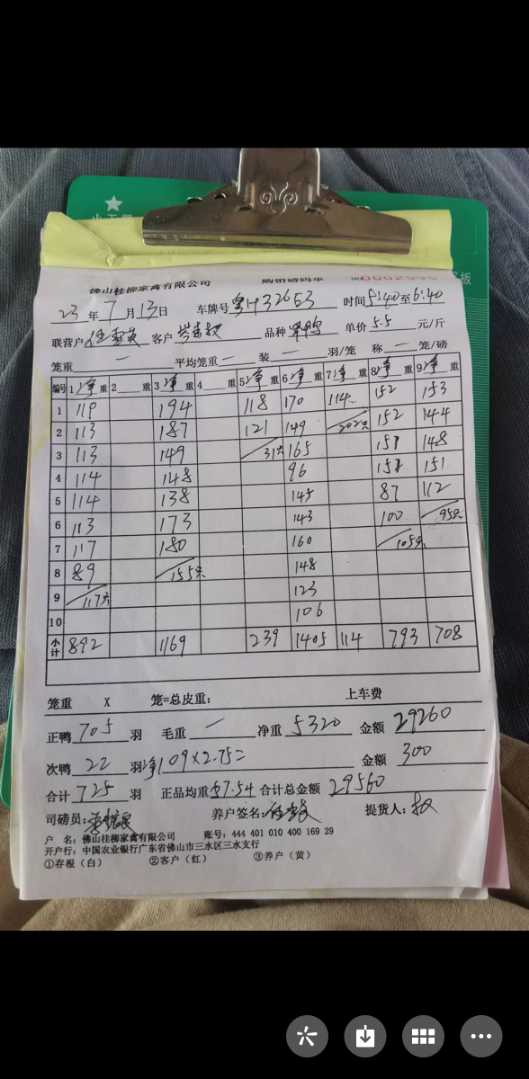 佛山桂柳家禽有限公司
23年7月13日 车牌号粤H32653 时间5:40至6:40
联营户 客户 品种 单价5.5元/斤
笼重 一 平均笼重 一 装 一 羽/笼 称 一 笼/磅
编号 1净重 2重 3净重 4重 5净重 6净重 7净重 8净重 9净重
1 119 194 118 170 114 152 153
2 113 187 121 149 202只 152 144
3 113 149 31只 165 151 148
4 114 148 96 158 151
5 114 138 145 87 112
6 113 173 143 100 95只
7 117 180 160 105只
8 89 155只 148
9 117只 123
10 106
小计 892 1169 239 1405 114 793 708
笼重 X 笼=总皮重: 上车费
正鸭705羽 毛重 一 净重5320 金额29260
次鸭22羽 净109×2.75= 金额300
合计725羽 正品均重7.54 合计总金额29560
司磅员: 养户签名: 提货人:
户 名:佛山桂柳家禽有限公司 账号:444 401 010 400 169 29
开户行:中国农业银行广东省佛山市三水区三水支行
①存根(白) ②客户(红) ③养户(黄)